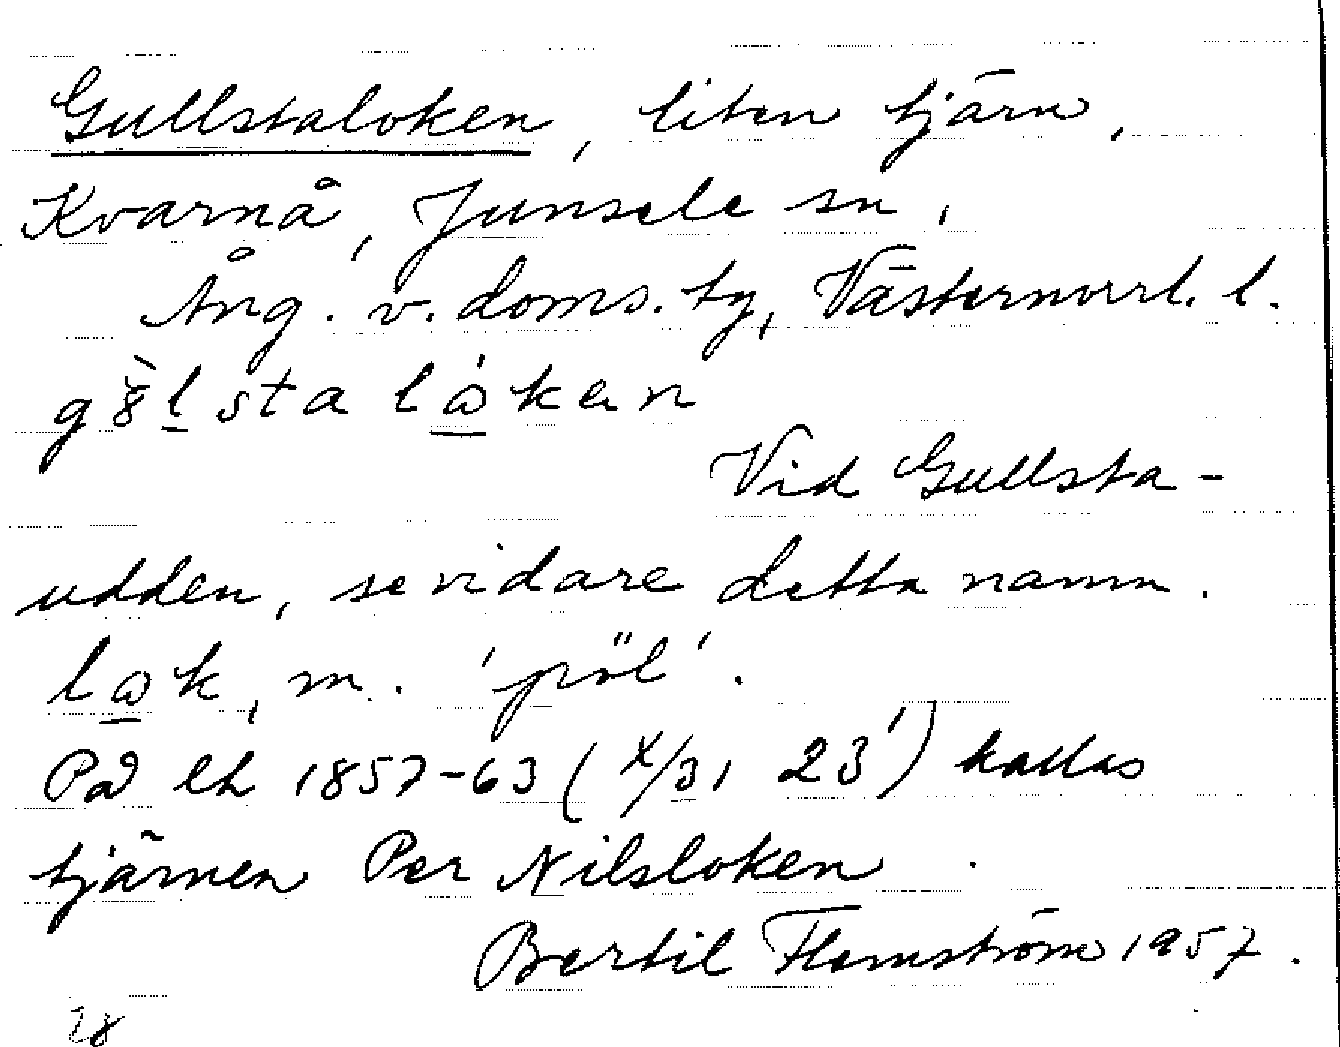 Gullstaloken, liten tjärn,
Kvarnå, Junsele sn,
Ång. v. doms. tg, Västernorrl. l.
Vid Gullsta-
udden, se vidare detta namn.
lok, m. 'pöl'.
På lk 1857-63 (X/31 23') kallas
tjärnen Per Nilsloken.
Bertil Flemström 1957.
28